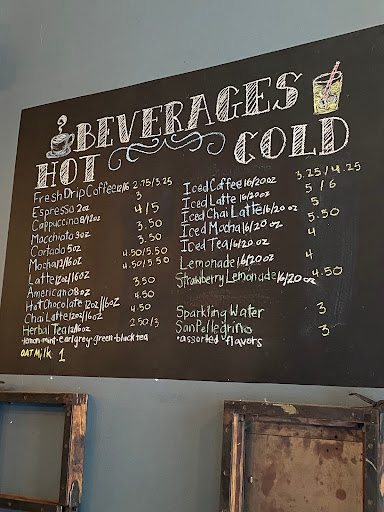 BEVERAGES
HOT
Fresh Drip Coffee 12/16 2.75/3.25
Espresso 2oz 3
Cappuccino 8/12oz 4/5
Macchiato 3oz 3.50
Cortado 5oz 3.50
Mocha 12/16oz 4.50/5.50
Latte 12oz/16oz 4.50/5.50
Americano 8oz 3.50
Hot Chocolate 12oz/16oz 4.50
Chai Latte 12oz/16oz 4.50
Herbal Tea 12/16oz 2.50/3
•lemon-mint-earl grey-green-black tea
OAT Milk 1
COLD
Iced Coffee 16/20oz 3.25/4.25
Iced Latte 16/20oz 5/6
Iced Chai Latte 16/20oz 5
Iced Mocha 16/20oz 5.50
Iced Tea 16/20oz 4
Lemonade 16/20oz 4
Strawberry Lemonade 16/20oz 4.50
Sparkling Water 3
San Pellegrino 3
•assorted flavors